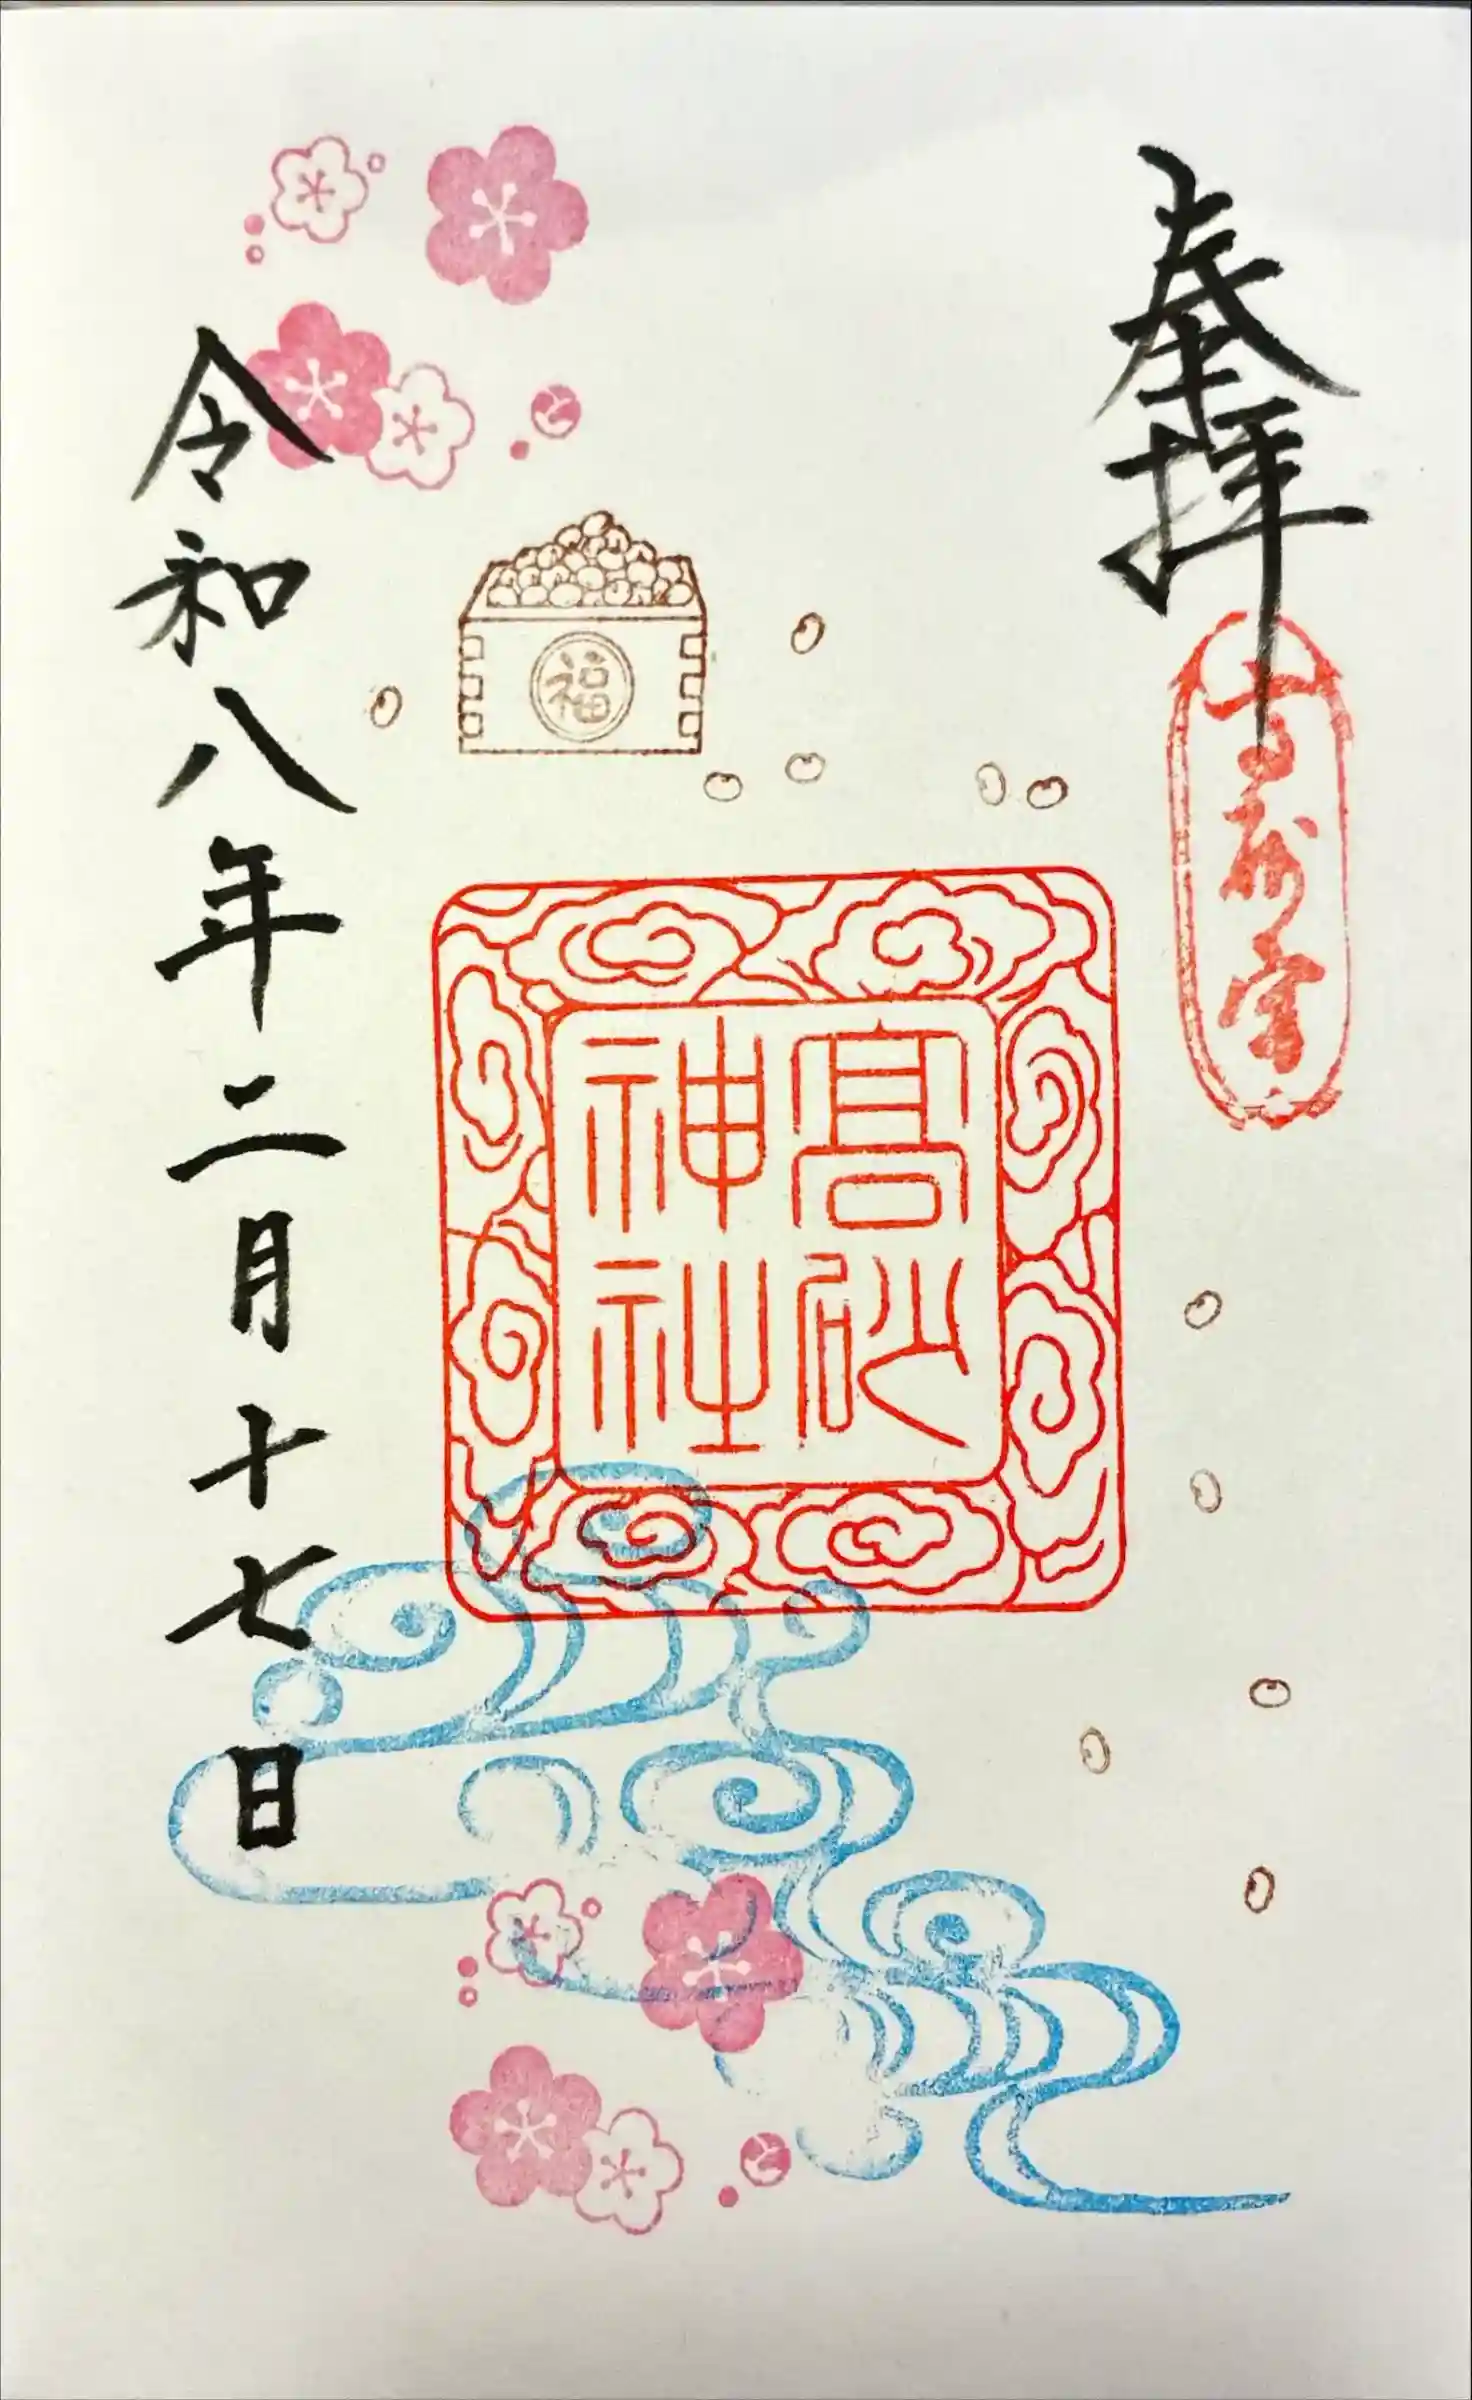 奉拝
高砂
神社
福
令和八年二月十七日